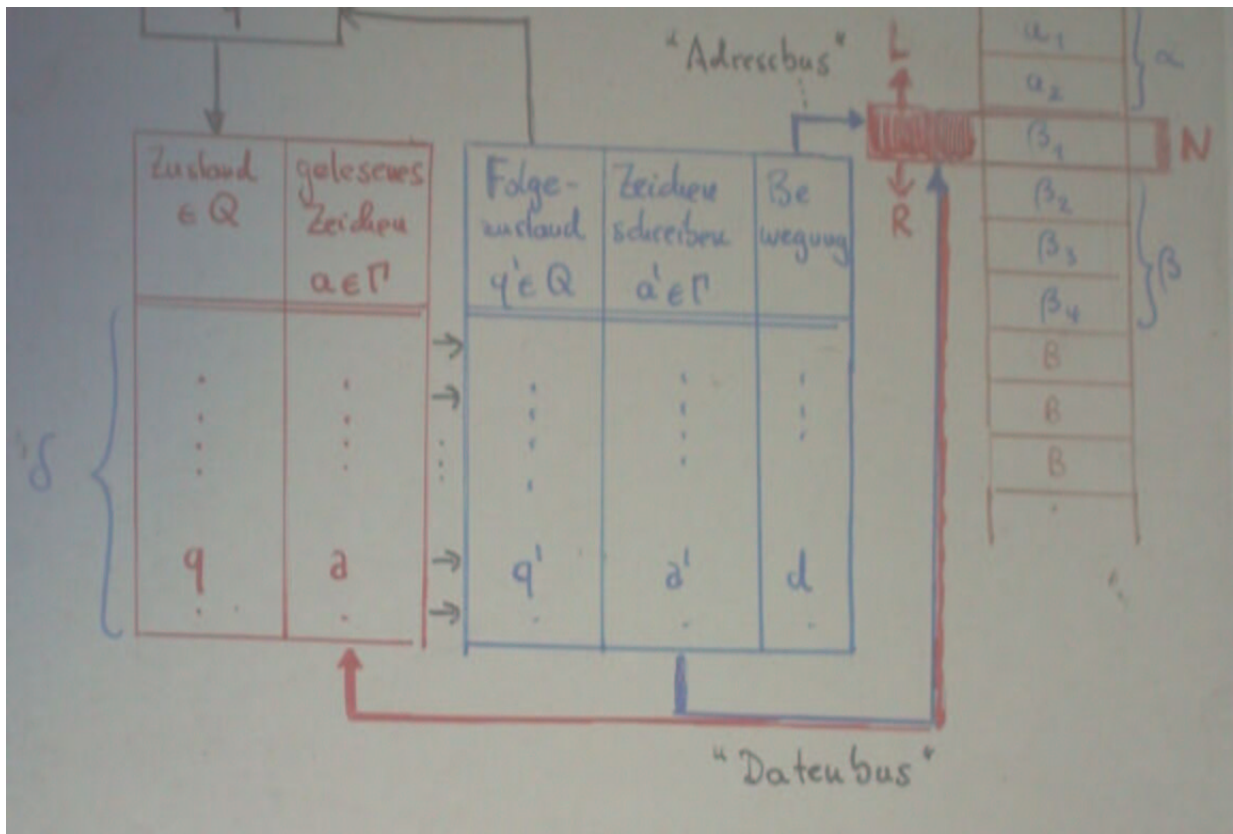 "Adressbus"
L
α₁
α₂
α
β₁
N
R
β₂
β₃
β₄
β
B
B
B
Zustand
∈ Q
gelesenes
Zeichen
a ∈ Γ
Folge-
zustand
q' ∈ Q
Zeichen
schreiben
a' ∈ Γ
Be
wegung
δ
q
a
q'
a'
d
"Datenbus"